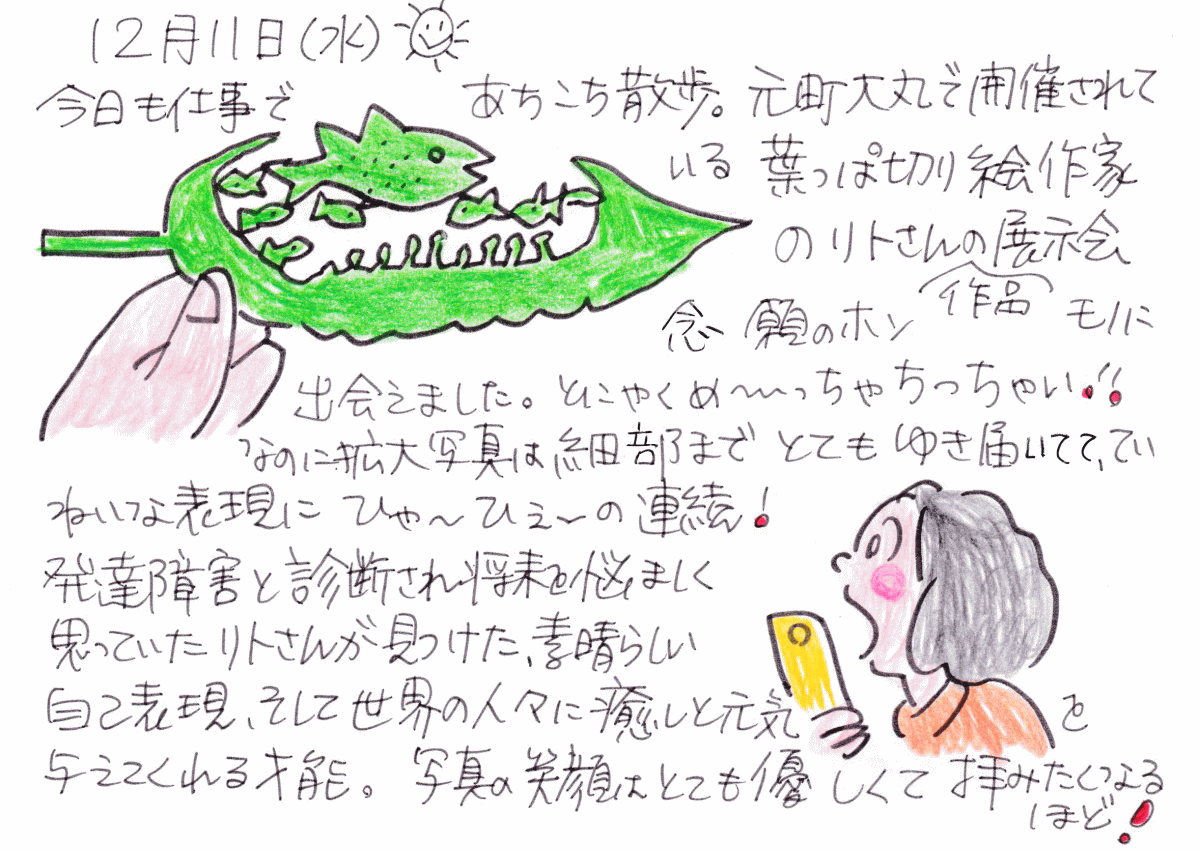 12月11日(水)
今日も仕事であちこち散歩。元町大丸で開催されて
いる葉っぱ切り絵作家
のリトさんの展示会
念願のホンモノに
作品
出会えました。とにゃくめ〜〜っちゃちっちゃい!!
なのに拡大写真は細部までとてもゆき届いてて、てい
ねいな表現にひゃ〜ひえ〜の連続!
発達障害と診断され将来を悩ましく
思っていたリトさんが見つけた、素晴らしい
自己表現、そして世界の人々に癒しと元気を
与えてくれる才能。写真の笑顔はとても優しくて拝みたくなる
ほど!